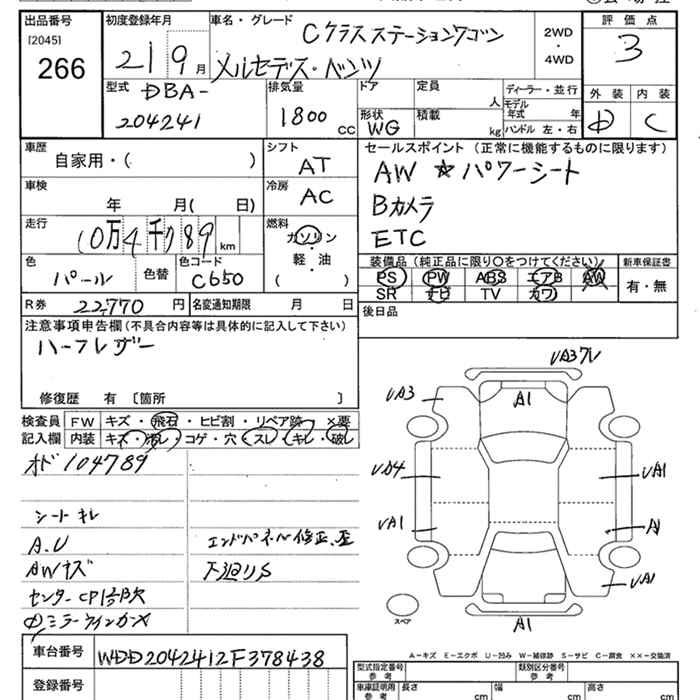 出品番号
[2045]
266
初度登録年月
21 9月
車名・グレード
Cクラスステーションワゴン
メルセデス・ベンツ
2WD
・
4WD
評価点
3
外装 内装
D C
型式
DBA-
204241
排気量
1800 CC
ドア
定員
人
形状
WG
積載
kg
ディーラー・並行
モデル年式 年
ハンドル 左・右
車歴
自家用・( )
シフト
AT
セールスポイント(正常に機能するものに限ります)
AW ☆パワーシート
Bカメラ
ETC
車検
年 月( 日)
冷房
AC
走行
10万4千789 km
燃料
ガソリン
・
軽・油
( )
色
パール
色替
色コード
C650
装備品(純正品に限り○をつけてください)
PS PW ABS エアB AW
SR ナビ TV カワ
新車保証書
有・無
R券
22,770円
名変通知期限 月 日
後日品
注意事項申告欄(不具合内容等は具体的に記入して下さい)
ハーフレザー
修復歴 有〔箇所 〕
検査員
記入欄
FW キズ・飛石・ヒビ割・リペア跡 ×要
内装 キズ・汚れ・コゲ・穴・スレ・キレ・破レ
オド104789
シートキレ
A.U
AWキズ
センターCP1部欠
エンドパネル修正、歪
下廻りS
車台番号
WDD2042412F378438
登録番号
A1
UA3
UA4
UA1
UA1
A1
UA1
A1
スペア
A-キズ E-エクボ U-凹み W-補修跡 S-サビ C-腐食 ××-交換済
型式指定番号
参考
類別区分番号
参考
車庫証明用
参考
長さ cm
幅 cm
高さ cm